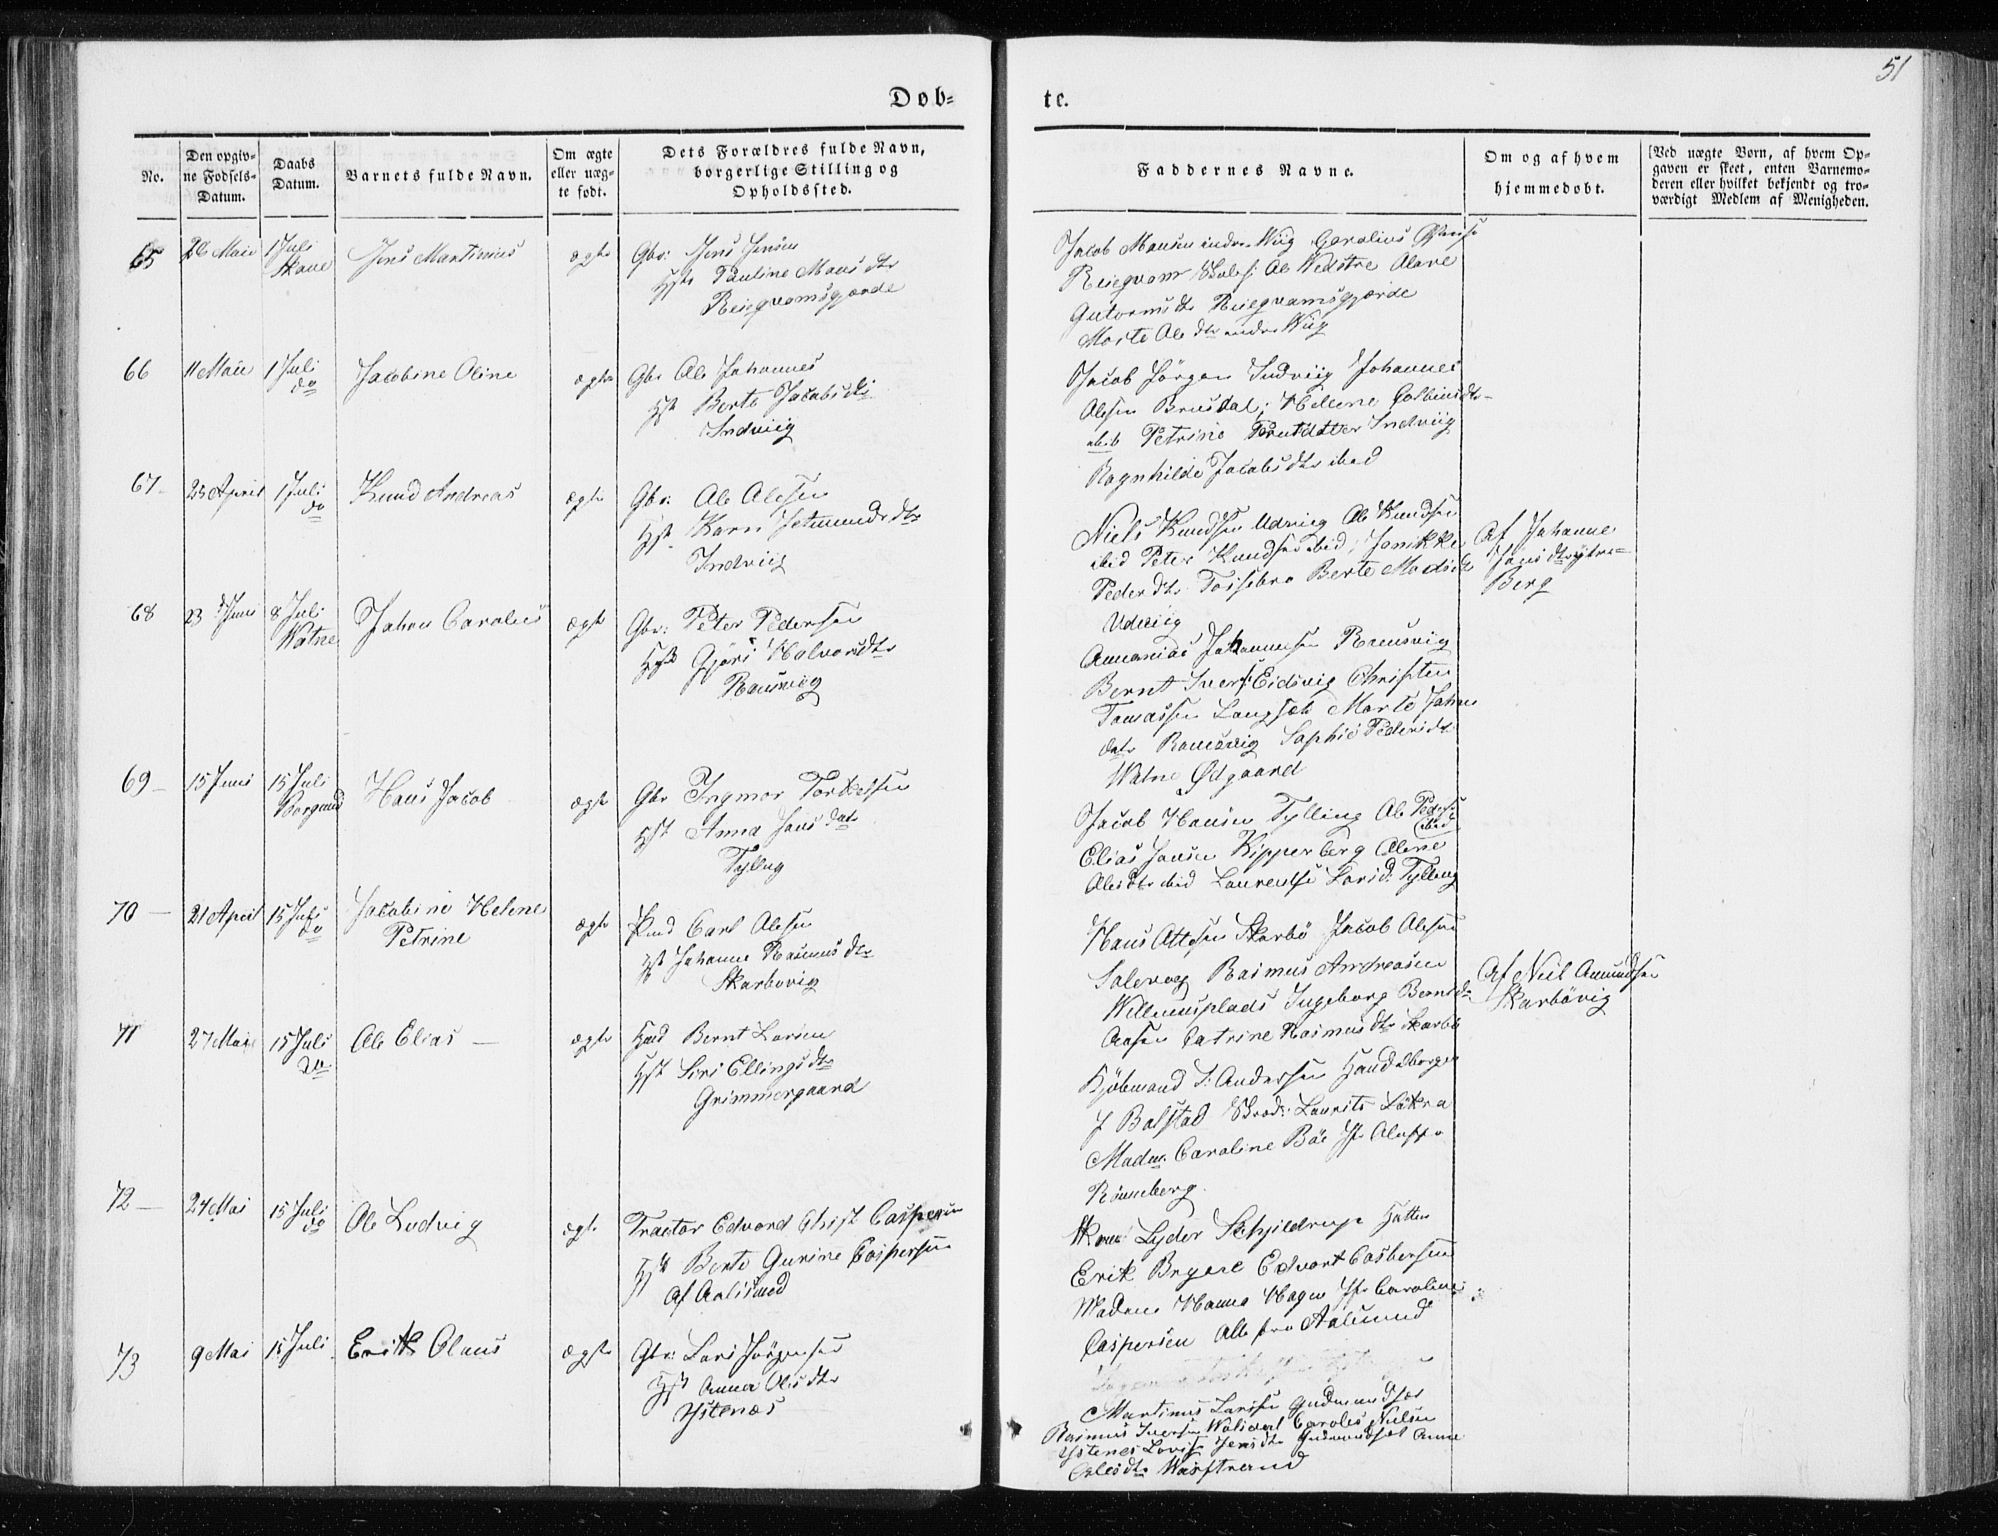 51
Døb=
te.
No.
Den opgiv=
ne Fødsels=
Datum.
Daabs
Datum.
Barnets fulde Navn.
Om ægte
eller uæg=
te født.
Dets Forældres fulde Navn,
borgerlige Stilling og
Opholdssted.
Faddernes Navne.
Om og af hvem
hjemmedøbt.
[Ved uægte Børn, af hvem Op=
gaven er skeet, enten Barnemo=
deren eller hvilket bekjendt og tro=
værdigt Medlem af Menigheden.
65
26 Maie
1 Juli
Skaue
Jens Martinius
ægte
Gbr: Jens Jensen
Hst Pauline Mons dtr
Resegvamsgjærde
Jacob Monsen indre Wiig Gerolius
Ole Vedstre Olave
Gutormsdtr
Marte Ole dtr indre Wiig
66
11 Maie
1 Juli
do
Jacobine Oline
ægte
Gbr Ole Johannes
Hst Berte Jacobsdtr
Indviig
Jacob Jørgen Indviig Johannes
Olesen Brusdal; Helene
ibid Petrine Indviig
Ragnhilde Jacobsdtr ibid
67
25 April
1 Juli
do
Knud Andreas
ægte
Gbr: Ole Olesen
Hst. Karn Jetmundsdtr
Indviig
Niels Knudsen Udviig Ole Knudsen
ibid Peter Knudsen ibid; Jenikke
Pedersdtr Fossebro Berte Madsdtr
Udviig
Af Johanne
Jons dtr ytre=
Berg
68
23 Juni
8 Juli
Watne
Johan Carolus
ægte
Gbr: Peter Pedersen
Hst Gjøri Halvorsdtr
Ramsvig
Annanias Johannesen Ramsvig
Bernt Ivers: Eidsvig Christen
Tomassen Langsæt Marte Johan
datr Ramsvig Sophie Pedersdtr
Watne Ødgaard
69
15 Juni
15 Juli
Borgund
Hans Jacob
ægte
Gbr Ingmor Torkelsen
Hst Anna Jons datr
Tylling
Jacob Hansen Tylling Ole Peders
ibid
Elias Jonsen Kipperberg Olene
Olesdtr ibid Laurentse Larsd: Tylling
70
21 April
15 Juli
do
Jacobine Helene
Petrine
ægte
Carl Olesen
Hst Johanne Rasmusdtr
Skarbøvig
Hans Ottesen Skarbø Jacob Olesen
Rasmus Andreasen
Willemsplads Ingeborg Berntsdtr
Aasen Catrine Rasmusdtr Skarbø
Af Neil Amundsen
Skarbøvig
71
27 Mai
15 Juli
do
Ole Elias
ægte
Hmd Bernt Larsen
Hst Siri Ellingsdtr
Grimmergaard
Kjøbmand I: Andersen Haandborger
J Bolstad Laurits
Madm. Caroline Bøe Jfr
Rønneberg.
72
24 Mai
15 Juli
do
Ole Ludvig
ægte
Tractør Edvard Chrst Caspersen
Hst Berte Gurine Caspersen
Af Aalesund
Lyder Schjeldrup
Erik Edvart Casbersen
Madam Hanna Hagen Jfr Caroline
Caspersen Alle fra Aalesund
73
9 Mai
15 Juli
Erik Olaus
ægte
Gbr: Lars Jørgensen
Hst Anna Olesdtr
Ystenes
Martinus Larsen Gudmundsæt
Rasmus Iversen Carolus Nilsen
Ystenes Lovise Jensdtr Gudmundsæt Anne
Olesdtr Wasstrand